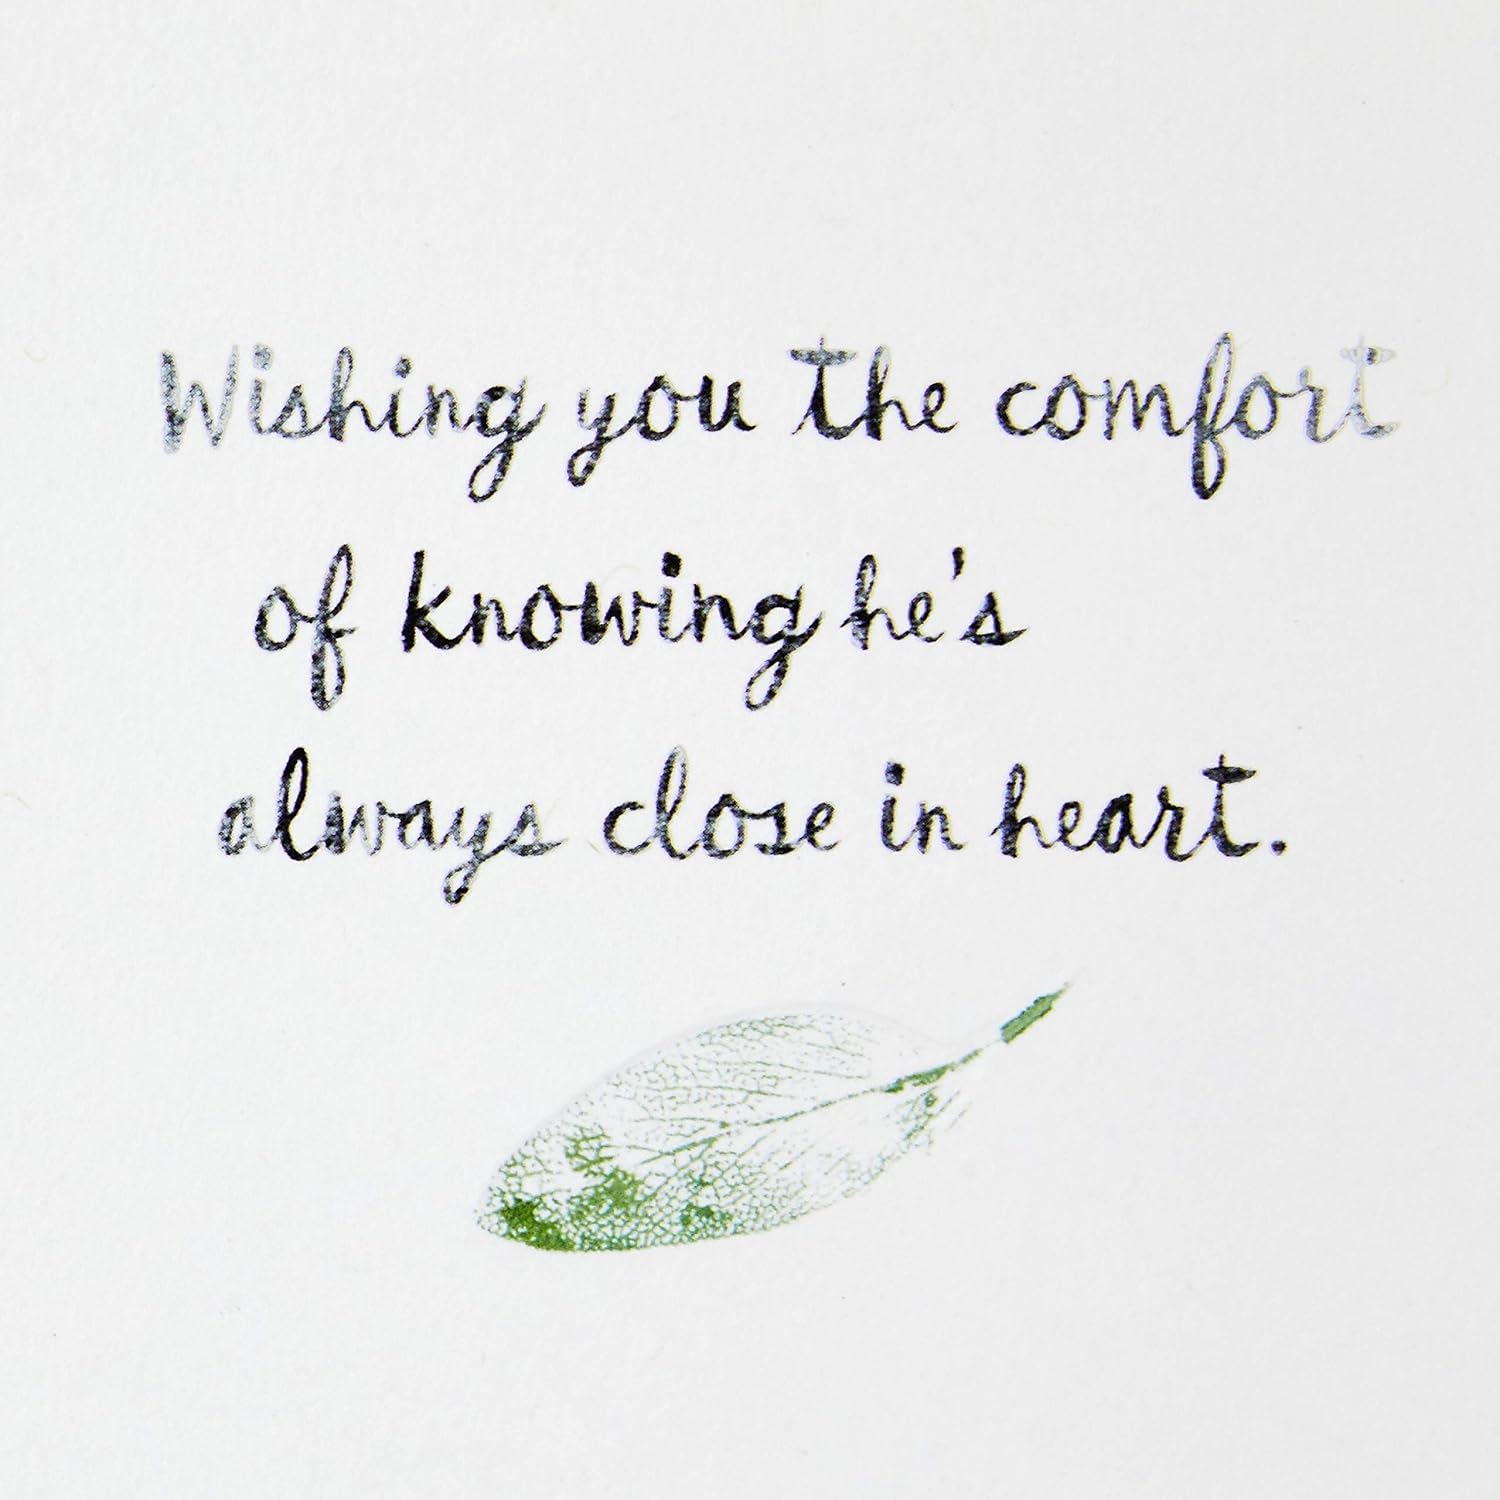 Wishing you the comfort
of knowing he's
always close in heart.